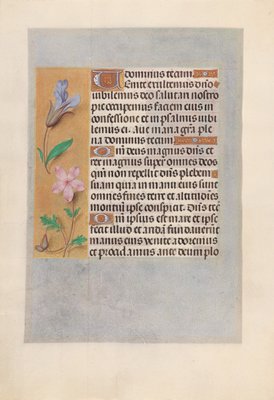 dominus tecum.
Enite exultemus dño
iubilemus deo salutari nostro
preoccupemus faciem eius in
confessione et in psalmis iubi
lemus ei. Aue maria gra ple
na dominus tecum
Qm̄ deus magnus dñs et
rex magnus super omnes deos
qm̄ non repellit dñs plebem
suam quia in manu eius sunt
omnes fines terre et altitudines
montiū ipse conspicit. Dñs tecū
Qm̄ ipsius est mare et ipse fe
cit illud et aridā fundauerūt
manus eius venite adoremus
et procidamus ante deum plo